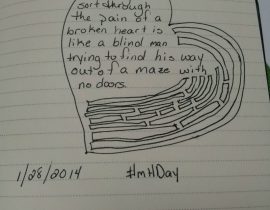 sort through
the pain of a
broken heart is
like a blind man
trying to find his way
out of a maze with
no doors.
1/28/2014 #mHDay